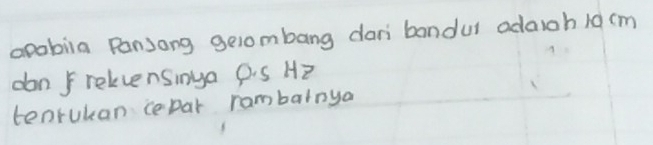 apabila Panjang gelombang dari bandul adalah 10 cm
dan frekuensinya 0.5 Hz
tentukan cepat rambatnya